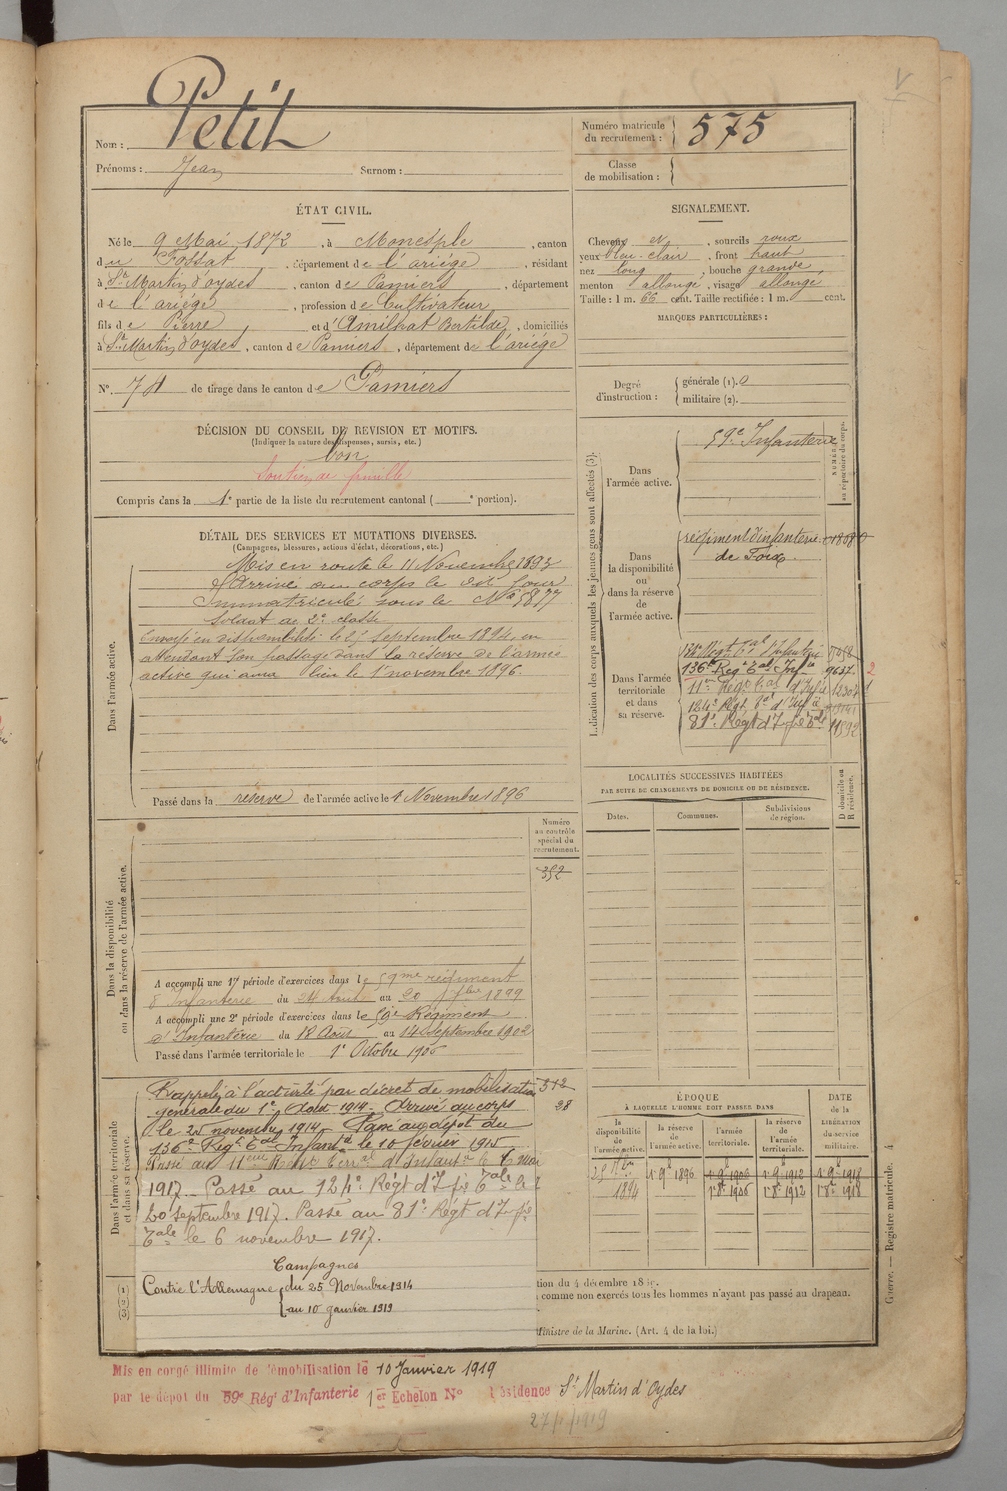 Petit
Nom :
Prénoms : Jean Surnom :
Numéro matricule du recrutement : 575
Classe de mobilisation :
ÉTAT CIVIL.
Né le 9 Mai 1872, à Monesple, canton
du Fossat, département de l'ariége, résidant
à St Martin d'oydes, canton de Pamiers, département
de l'ariége, profession de Cultivateur
fils de Pierre et d'Amilhat Bertilde, domiciliés
à St Martin d'oydes, canton de Pamiers, département de l'ariége
N° 74 de tirage dans le canton de Pamiers
SIGNALEMENT.
Cheveux et, sourcils roux
yeux bleu-clair, front haut
nez long, bouche grande,
menton allongé, visage allongé
Taille : 1 m. 66 cent. Taille rectifiée : 1 m. cent.
MARQUES PARTICULIÈRES :
Degré d'instruction : générale (1). 0
militaire (2).
DÉCISION DU CONSEIL DE REVISION ET MOTIFS.
(Indiquer la nature des dispenses, sursis, etc.)
bon
Soutien de famille
Compris dans la 1e partie de la liste du recrutement cantonal ( e portion).
DÉTAIL DES SERVICES ET MUTATIONS DIVERSES.
(Campagnes, blessures, actions d'éclat, décorations, etc.)
Dans l'armée active.
Mis en route le 11 Novembre 1893
Arrivé au corps le dit jour
Immatriculé sous le N° 5877
Soldat de 2e classe
Envoyé en disponibilité le 25 septembre 1894, en
attendant son passage dans la réserve de l'armée
active qui aura lieu le 1er novembre 1896.
Passé dans la réserve de l'armée active le 1 Novembre 1896
Indication des corps auxquels les jeunes gens sont affectés (3).
NUMÉRO au répertoire du corps.
Dans l'armée active.
59e Infanterie
Dans la disponibilité ou dans la réserve de l'armée active.
régiment d'infanterie
de Foix
Dans l'armée territoriale et dans sa réserve.
136e Régt Tal Infie 9637
11me Régt Tal d'Infie 12307
124e Régt Tal d'Infie
81e Régt d'Infie Tale 11892
2
LOCALITÉS SUCCESSIVES HABITÉES
PAR SUITE DE CHANGEMENTS DE DOMICILE OU DE RÉSIDENCE.
Dates. Communes. Subdivisions de région.
D domicile ou R résidence.
Dans la disponibilité ou dans la réserve de l'armée active.
Numéro au contrôle spécial du recrutement.
352
A accompli une 1re période d'exercices dans le 59me régiment
d'Infanterie du 24 Août au 20 7bre 1899
A accompli une 2e période d'exercices dans le 59e Régiment
d'Infanterie du 18 Août au 14 Septembre 1902
Passé dans l'armée territoriale le 1er Octobre 1906
Dans l'armée territoriale et dans sa réserve.
Rappelé à l'activité par décret de mobilisation
générale du 1er Août 1914. Arrivé au corps
le 25 novembre 1914. Passé au dépôt du
136e Régt Tal Infantie le 10 février 1915
Passé au 11eme Régt Terral d'Infantie le 6 Mai
1917. Passé au 124e Régt d'Infie Tale le
20 septembre 1917. Passé au 81e Régt d'Infie
Tale le 6 novembre 1917.
Campagnes
Contre l'Allemagne du 25 Novembre 1914
au 10 janvier 1919
312
28
ÉPOQUE
À LAQUELLE L'HOMME DOIT PASSER DANS
DATE de la LIBÉRATION du service militaire.
la disponibilité de l'armée active.
la réserve de l'armée active.
l'armée territoriale.
la réserve de l'armée territoriale.
25 7bre 1894 1er 9bre 1896 1er 9bre 1906 1er 9bre 1912 1er 9bre 1918
1er 8bre 1906 1er 8bre 1912 1er 8bre 1918
(1)
(2)
(3)
tion du 4 décembre
comme non exercés tous les hommes n'ayant pas passé au drapeau.
Ministre de la Marine. (Art. 4 de la loi.)
Guerre. — Registre matricule. 4
Mis en congé illimité de démobilisation le 10 Janvier 1919
par le dépôt du 59e Régt d'Infanterie 1er Echelon N° Résidence St Martin d'Oydes
27/1/1919